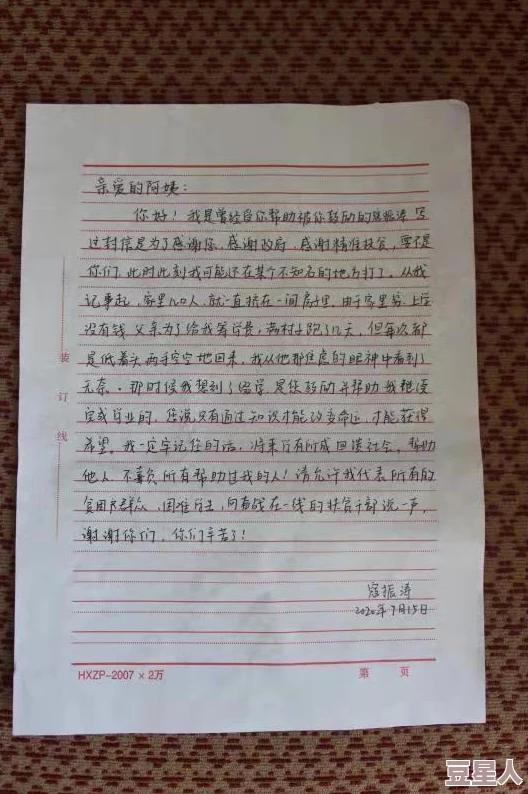 亲爱的阿姨：
你好！我是曾经您帮助被你鼓励的寇振涛 写
这封信是为了感谢您、感谢政府，感谢精准扶贫，要不是
你们，此时此刻我可能还在某个不知名的地方打工。从我
记事起，家里几口人，就一直挤在一间房子里，由于家里穷，上学
没有钱 父亲为了给我筹学费，满村子跑了几天，但每次都
是低着头两手空空地回来，我从他那焦虑的眼神中看到了
无奈。那时候我想到了辍学 是您鼓励并帮助我
完成学业的，您说只有通过知识才能改变命运，才能获得
希望。我一定牢记您的话，将来学有所成回馈社会，帮助
他人 不辜负所有帮助过我的人！请允许我代表所有的
贫困户群众、困难学生，向奋战在一线的扶贫干部说一声，
谢谢你们，你们辛苦了！
寇振涛
2020年7月15日
装
订
线
HXZP-2007×2万
第 页
豆星人